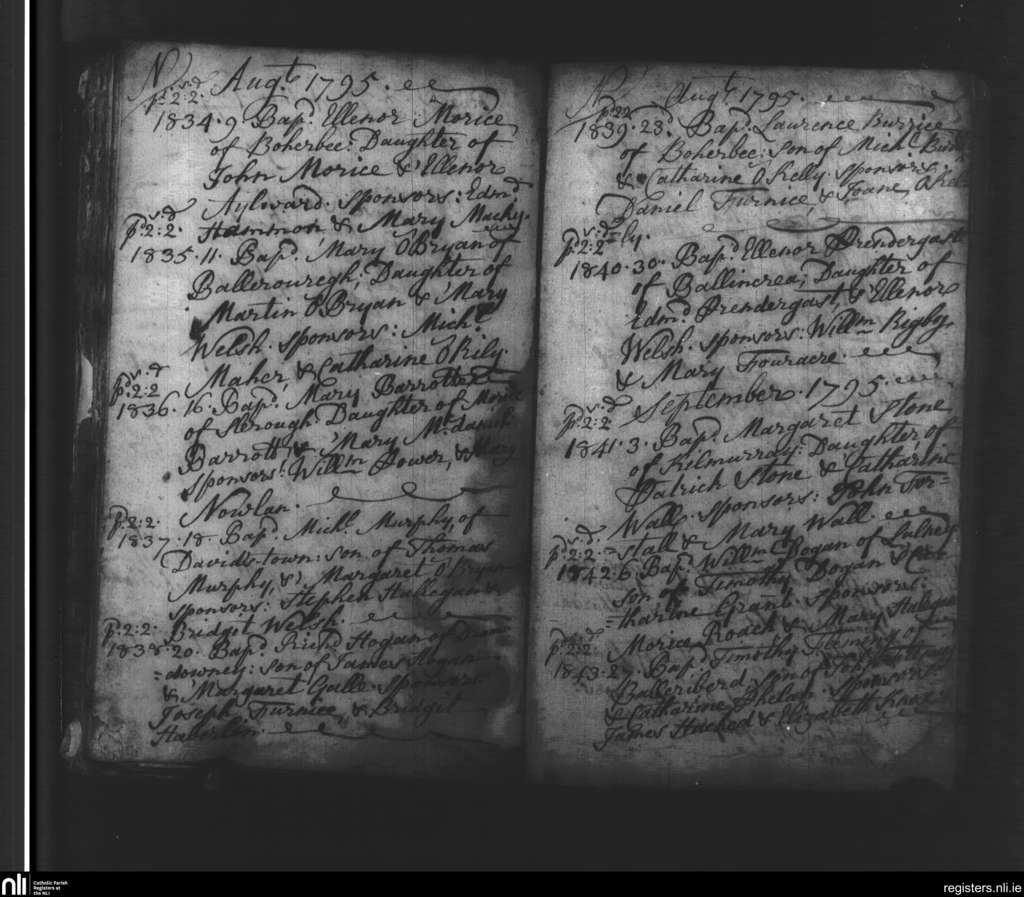 No. Augt. 1795.
pd. 2:2.
1834. 9. Bapd. Ellenor Morice
of Boherbee: Daughter of
John Morice & Ellenor
Aylward. sponsors: Edmd.
pd. 2:2. Hammon, & Mary Macky.
1835. 11. Bapd. Mary O'Bryan of
Ballerouregh; Daughter of
Martin O'Bryan & Mary
Welsh. sponsors: Michl.
Maher, & Catharine O'Rily.
pd. 2:2
1836. 16. Bapd. Mary Barrotte
of Daughter of Morice
Barrott, & Mary
sponsors: Willm Power, & Mary
Nowlan.
pd. 2:2.
1837. 18. Bapd. Michl. Murphy, of
Davids-town: son of Thomas
Murphy, & Margaret O'Bryan
sponsors: Stephen Hallegan &
p: 2:2. Bridgit Welsh.
1838. 20. Bapd. Richd. Hogan of Drum
=downey: son of James Hogan
& Margaret Galle. sponsors
Joseph Furnice, & Bridgit
Haberlin.
No. Augt. 1795.
pd. 22
1839. 23. Bapd. Laurence Burrice
of Boherbee: son of Michl.
& Catharine O'Kelly. sponsors
Daniel Furnice, & Joane O'Kel=
pd. 2:2 =ly.
1840. 30. Bapd. Ellenor Prendergast
of Ballincrea; Daughter of
Edmd. Prendergast, & Ellenor
Welsh. sponsors: Willm Rigby,
& Mary Fouracre.
September. 1795.
pd. 2:2
1841. 3. Bapd. Margaret Stone
of Kilmurray: Daughter of
Patrick Stone & Catharine
Wall. sponsors: John For=
pd. 2:2. =stall & Mary Wall.
1842. 6. Bapd. Willm Bogan of
son of Timothy Bogan & Ca=
=tharine Grant. sponsors:
p: 2:2. Morice Roach & Mary
1843. 27. Bapd. Timothy Fleming of
Balleriberd son of
& Catharine Phelan. sponsors
James Hacked & Elizabeth Knox
nli
Catholic Parish
Registers at
the NLI
registers.nli.ie